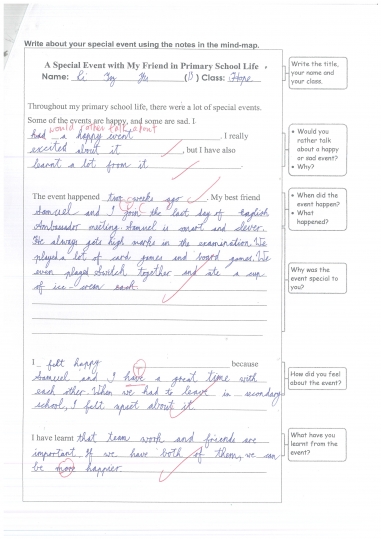 Write about your special event using the notes in the mind-map.
A Special Event with My Friend in Primary School Life
Name: Li Yu ( ) Class: Hope
Throughout my primary school life, there were a lot of special events.
Some of the events are happy, and some are sad. I
would rather talk about
had a happy event. I really
excited about it, but I have also
learnt a lot from it.
The event happened two weeks ago. My best friend
Samuel and I join the last day of English
Ambassador meeting. Samuel is smart and clever.
He always gets high marks in the examination. We
played a lot of card games and board games. We
even played Switch together and ate a cup
of ice-cream each.
I felt happy because
Samuel and I have a great time with
each other. When we had to leave in secondary
school, I felt about it.
I have learnt that team work and friends are
important. If we have both of them, we can
be more happier.
Write the title,
your name and
your class.
• Would you
rather talk
about a happy
or sad event?
• Why?
• When did the
event happen?
• What
happened?
Why was the
event special to
you?
How did you feel
about the event?
What have you
learnt from the
event?